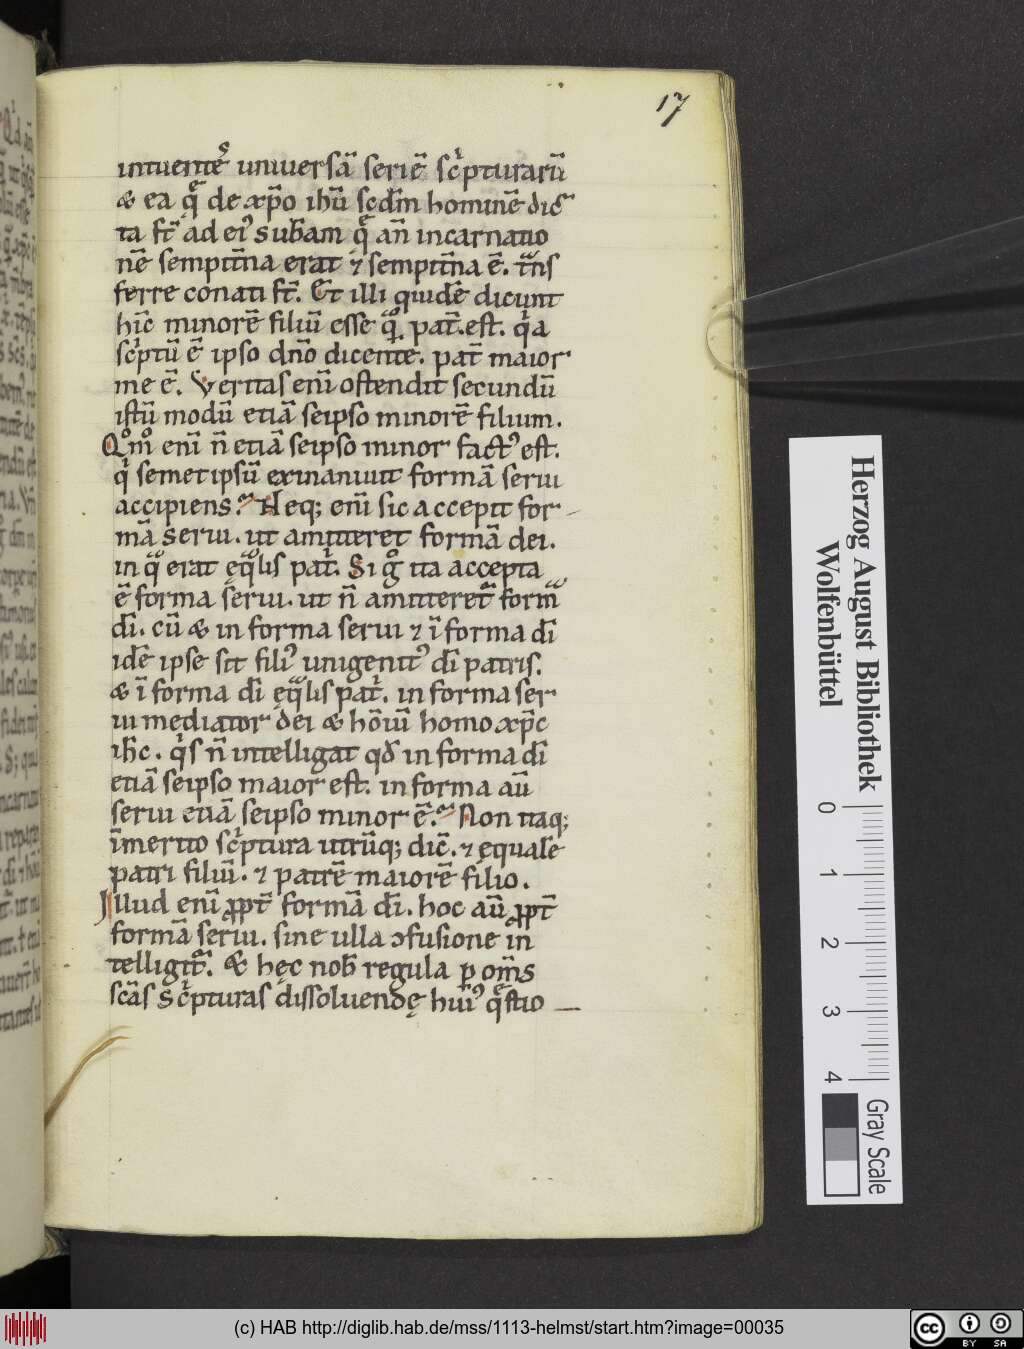 17
intuentes uniuersā seriē sc̄pturarū
& ea q̄ de xp̄o ihū scd̄m hominē dic̄
ta st̄ ad eiꝰ subam q̄ an̄ incarnatio
nē sempit̄na erat ⁊ sempit̄na ē. tn̄s
ferre conati st̄. Et illi quidē dicunt
hīc minorē filiū esse q̊. pat̄. est. q̍a
sc̍ptū ē ipso dn̄o dicente. pat̄ maior
me ē. Veritas enī ostendit secundū
istū modū etiā seipso minorē filium.
Qm̊o enī n̄ etiā seipso minor factꝰ est.
q̍ semetipsū exinaniuit formā serui
accipiens. Neq; enī sic accepit for
mā serui. ut amitteret formā dei.
in qͣ erat ęqͣlis pat̍. Si g̊ ita accepta
ē forma serui. ut n̄ amitteret̄ formͣ
dī. cū & in forma serui ⁊ ī forma dī
idē ipse sit filiꝰ unigenitꝰ dī patris.
& ī forma dī ęqͣlis pat̍. in forma ser
ui mediator dei & hōiū homo xp̄c
ihc̄. q̍s n̄ intelligat qđ in forma dī
etiā seipso maior est. in forma aū
serui etiā seipso minor ē. Non itaq;
īmerito sc̍ptura utrūq; dic̄. ⁊ ęqualē
patri filiū. ⁊ patrē maiorē filio.
Illud enī ꝓpt̄ formā dī. hoc aū ꝓpt̄
formā serui. sine ulla ↄfusione in
telligit̄. & hęc nob̄ regula p om̄s
scās sc̍pturas dissoluendę huiꝰ q̄stio
Herzog August Bibliothek
Wolfenbüttel
0 1 2 3 4
Gray Scale
(c) HAB http://diglib.hab.de/mss/1113-helmst/start.htm?image=00035
cc BY SA